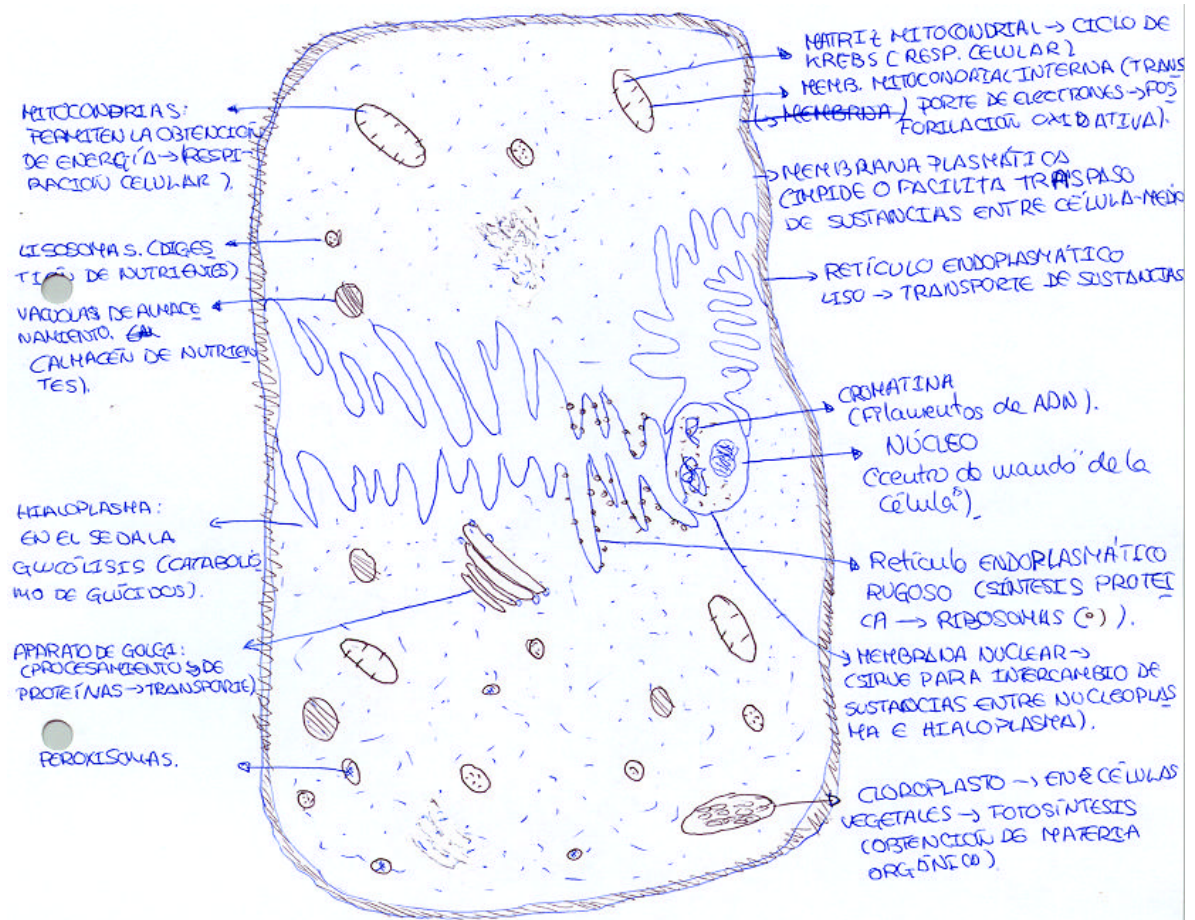 MITOCONDRIAS:
PERMITEN LA OBTENCION
DE ENERGÍA → (RESPI-
RACIÓN CELULAR).
LISOSOMAS. (DIGES
TIÓN DE NUTRIENTES)
VACUOLAS DE ALMACE
NAMIENTO.
(ALMACÉN DE NUTRIEN
TES).
HIALOPLASMA:
EN EL SE DA LA
GLUCÓLISIS (CATABOLIS
MO DE GLÚCIDOS).
APARATO DE GOLGI:
(PROCESAMIENTO DE
PROTEÍNAS → TRANSPORTE)
PEROXISOMAS.
MATRIZ MITOCONDRIAL → CICLO DE
KREBS (RESP. CELULAR)
MEMB. MITOCONDRIAL INTERNA (TRANS
(→ MEMBRANA) PORTE DE ELECTRONES → FOS
FORILACIÓN OXIDATIVA).
MEMBRANA PLASMÁTICA
(IMPIDE O FACILITA TRASPASO
DE SUSTANCIAS ENTRE CÉLULA-MEDIO
RETÍCULO ENDOPLASMÁTICO
LISO → TRANSPORTE DE SUSTANCIAS
CROMATINA
(Filamentos de ADN).
NÚCLEO
("centro de mando" de la
célula)
Retículo ENDOPLASMÁTICO
RUGOSO (SÍNTESIS PROTEÍ
CA → RIBOSOMAS (°)).
MEMBRANA NUCLEAR →
(SIRVE PARA INTERCAMBIO DE
SUSTANCIAS ENTRE NUCLEOPLAS
MA E HIALOPLASMA).
CLOROPLASTO → EN CÉLULAS
VEGETALES → FOTOSÍNTESIS
(OBTENCIÓN DE MATERIA
ORGÁNICA).